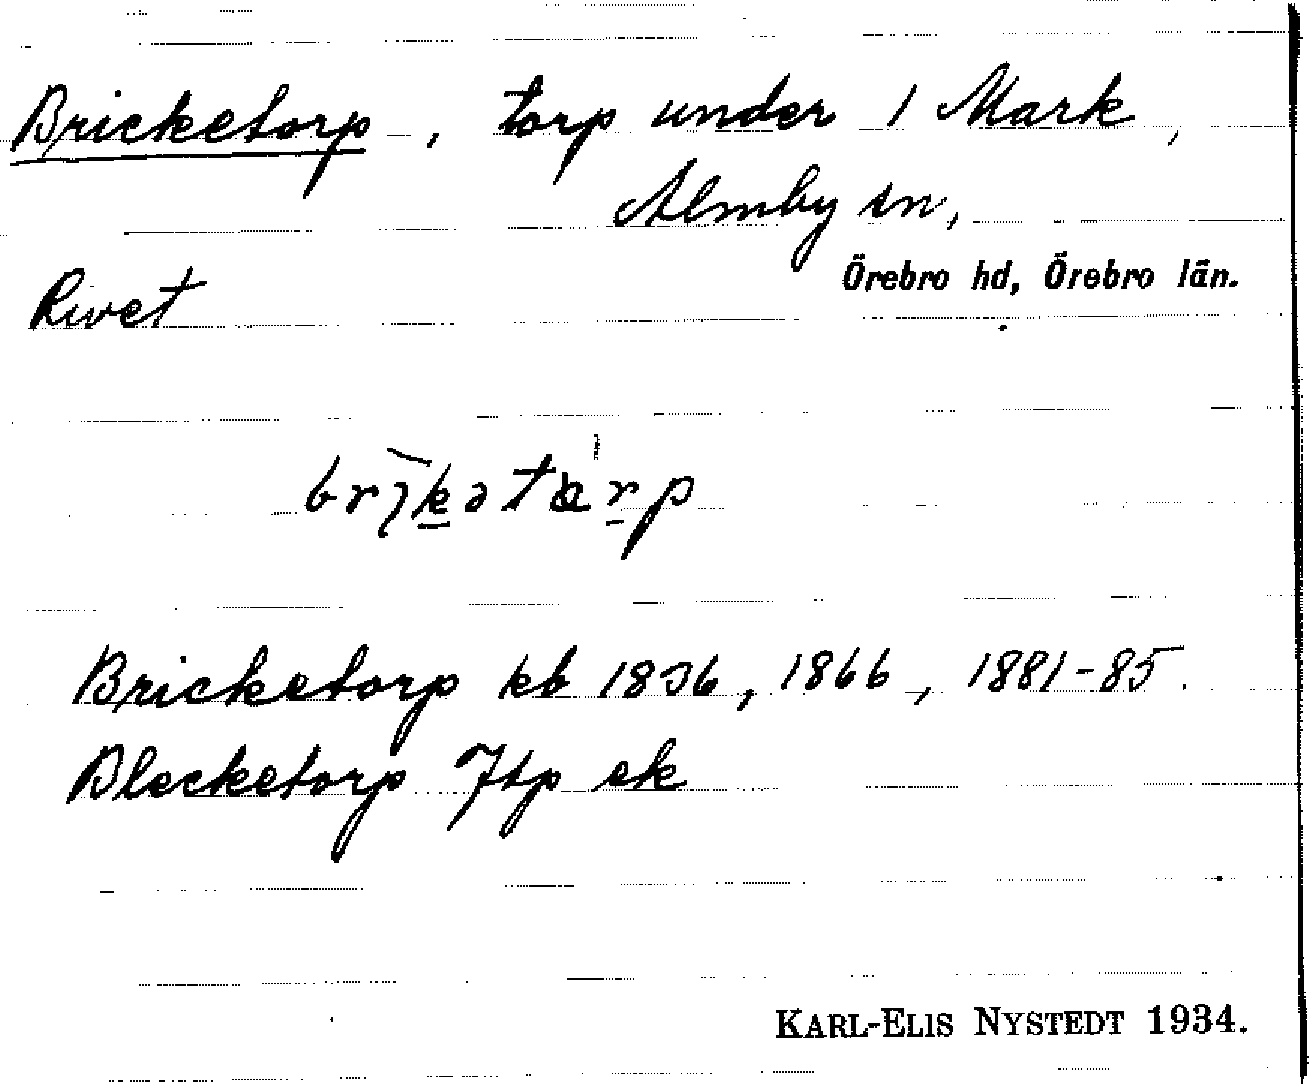 Bricketorp, torp under 1 Mark,
Almby sn,
Örebro hd, Örebro län.
Rivet
brikətarp
Bricketorp kb 1836, 1866, 1881-85.
Blecketorp Jtp ek
KARL-ELIS NYSTEDT 1934.